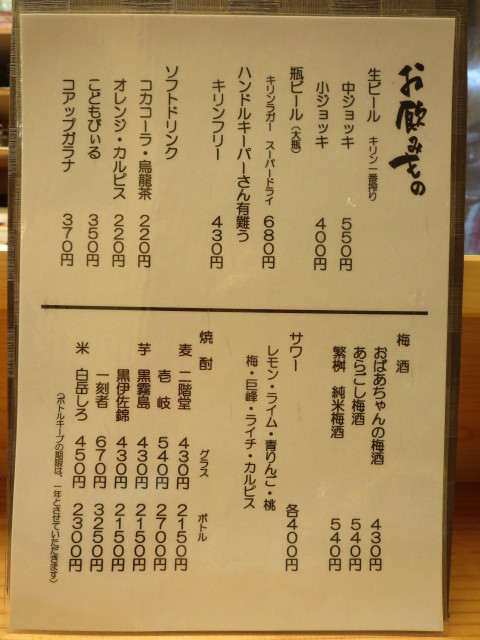 お飲みもの
生ビール　キリン一番搾り
中ジョッキ　５５０円
小ジョッキ　４００円
瓶ビール（大瓶）
キリンラガー　スーパードライ　６８０円
ハンドルキーパーさん有難う
キリンフリー　４３０円
ソフトドリンク
コカコーラ・烏龍茶　２２０円
オレンジ・カルピス　２２０円
こどもびぃる　３５０円
コアップガラナ　３７０円
梅酒
おばあちゃんの梅酒　４３０円
あらごし梅酒　５４０円
繁桝　純米梅酒　５４０円
サワー　各４００円
レモン・ライム・青りんご・桃
梅・巨峰・ライチ・カルピス
焼酎　グラス　ボトル
麦　二階堂　４３０円　２１５０円
壱岐　５４０円　２７００円
芋　黒霧島　４３０円　２１５０円
黒伊佐錦　４３０円　２１５０円
一刻者　６７０円　３２５０円
米　白岳しろ　４５０円　２３００円
（ボトルキープの期限は、一年とさせていただきます）